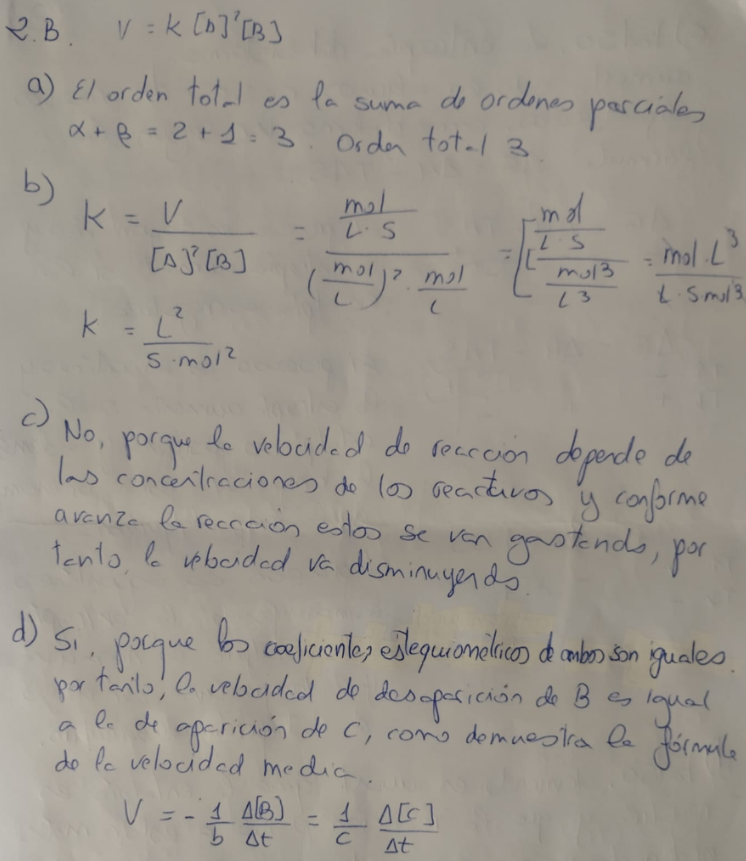 2.B. V = K [A]² [B]
a) El orden total es la suma de ordenes parciales
α + β = 2 + 1 = 3. Orden total 3.
b) K = V / [A]² [B] = (mol / L · s) / ((mol / L)² · mol / L) = [(mol / [L · s) / (mol³ / L³) = mol · L³ / L · s mol³
K = L² / s · mol²
c) No, porque la velocidad de reacción depende de
las concentraciones de los reactivos y conforme
avanza la reacción estos se van gastando, por
tanto, la velocidad va disminuyendo.
d) Si, porque los coeficientes estequiométricos de ambos son iguales.
por tanto, la velocidad de desaparición de B es igual
a la de aparición de C, como demuestra la fórmula
de la velocidad media.
V = - 1/b Δ[B]/Δt = 1/c Δ[C]/Δt